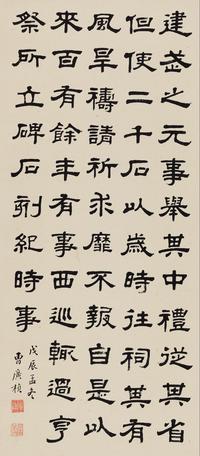 建武之元事舉其中禮從其省
但使二千石以歲時往祠其有
風旱禱請祈求靡不報自是以
來百有餘年有事西巡輒過亨
祭所立碑石刻紀時事
戊辰孟冬
曹廣楨